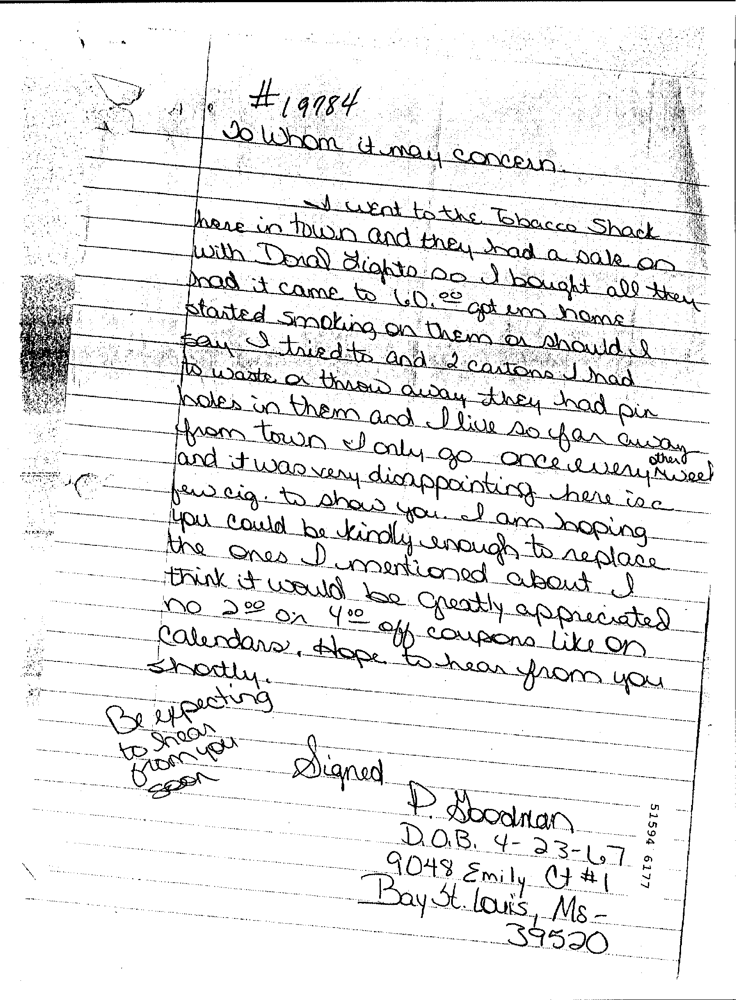 #19784
To Whom it may concern.
I went to the Tobacco Shack
here in town and they had a sale on
with Doral Lights so I bought all they
had it came to 60.00 got em home
started smoking on them or should I
say I tried to and 2 cartons I had
to waste or throw away they had pin
holes in them and I live so far away
from town I only go once every other week
and it was very disappointing here is a
few cig. to show you. I am hoping
you could be kindly enough to replace
the ones I mentioned about I
think it would be greatly appreciated
no 2.00 or 4.00 off coupons like on
calendars. Hope to hear from you
shortly.
Be expecting
to hear
from you
soon
Signed
P. Goodman
D.O.B. 4-23-67
9048 Emily Ct #1
Bay St. Louis, Ms-
39520
51594 6177